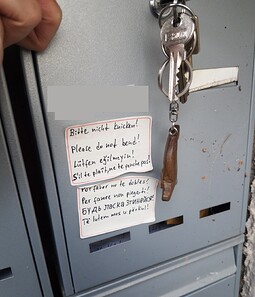 Bitte nicht knicken!
Please do not bend!
Lütfen eğilmeyin!
S'il te plaît, ne te penche pas!
Por favor no te dobles!
Per favore non piegarti!
БУДЬ ЛАСКА ЗГИНАЙСЯ!
Të lutem mos u përkul!